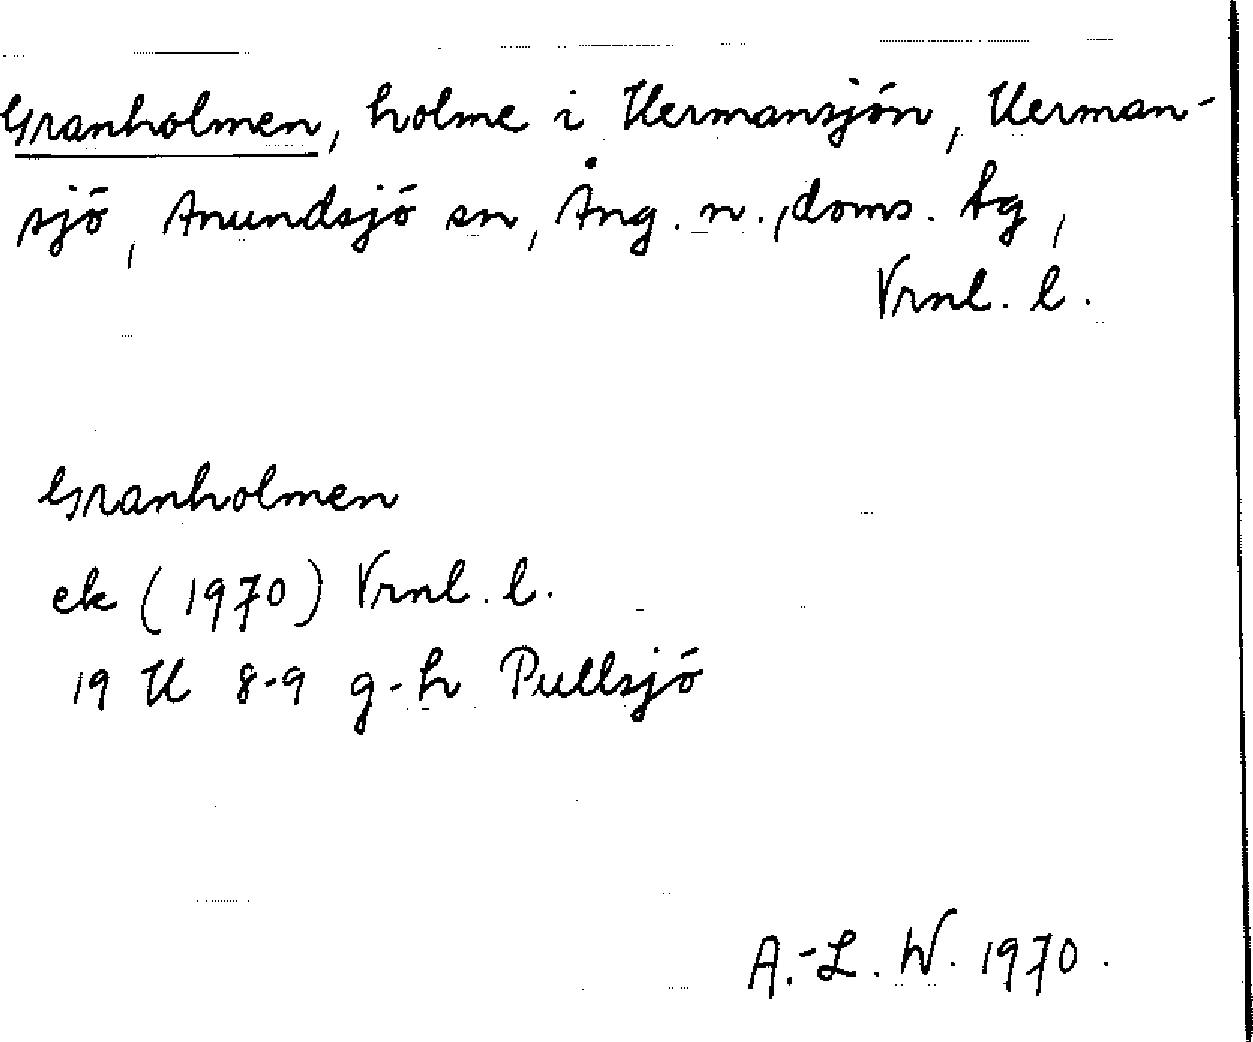 Granholmen, holme i Hermansjön, Herman-
sjö, Anundsjö sn, Ång. n., doms. tg,
Vrnl. l.
Granholmen
ek (1970) Vrnl. l.
19 H 8-9 g-h Pullsjö
A.-L. W. 1970.